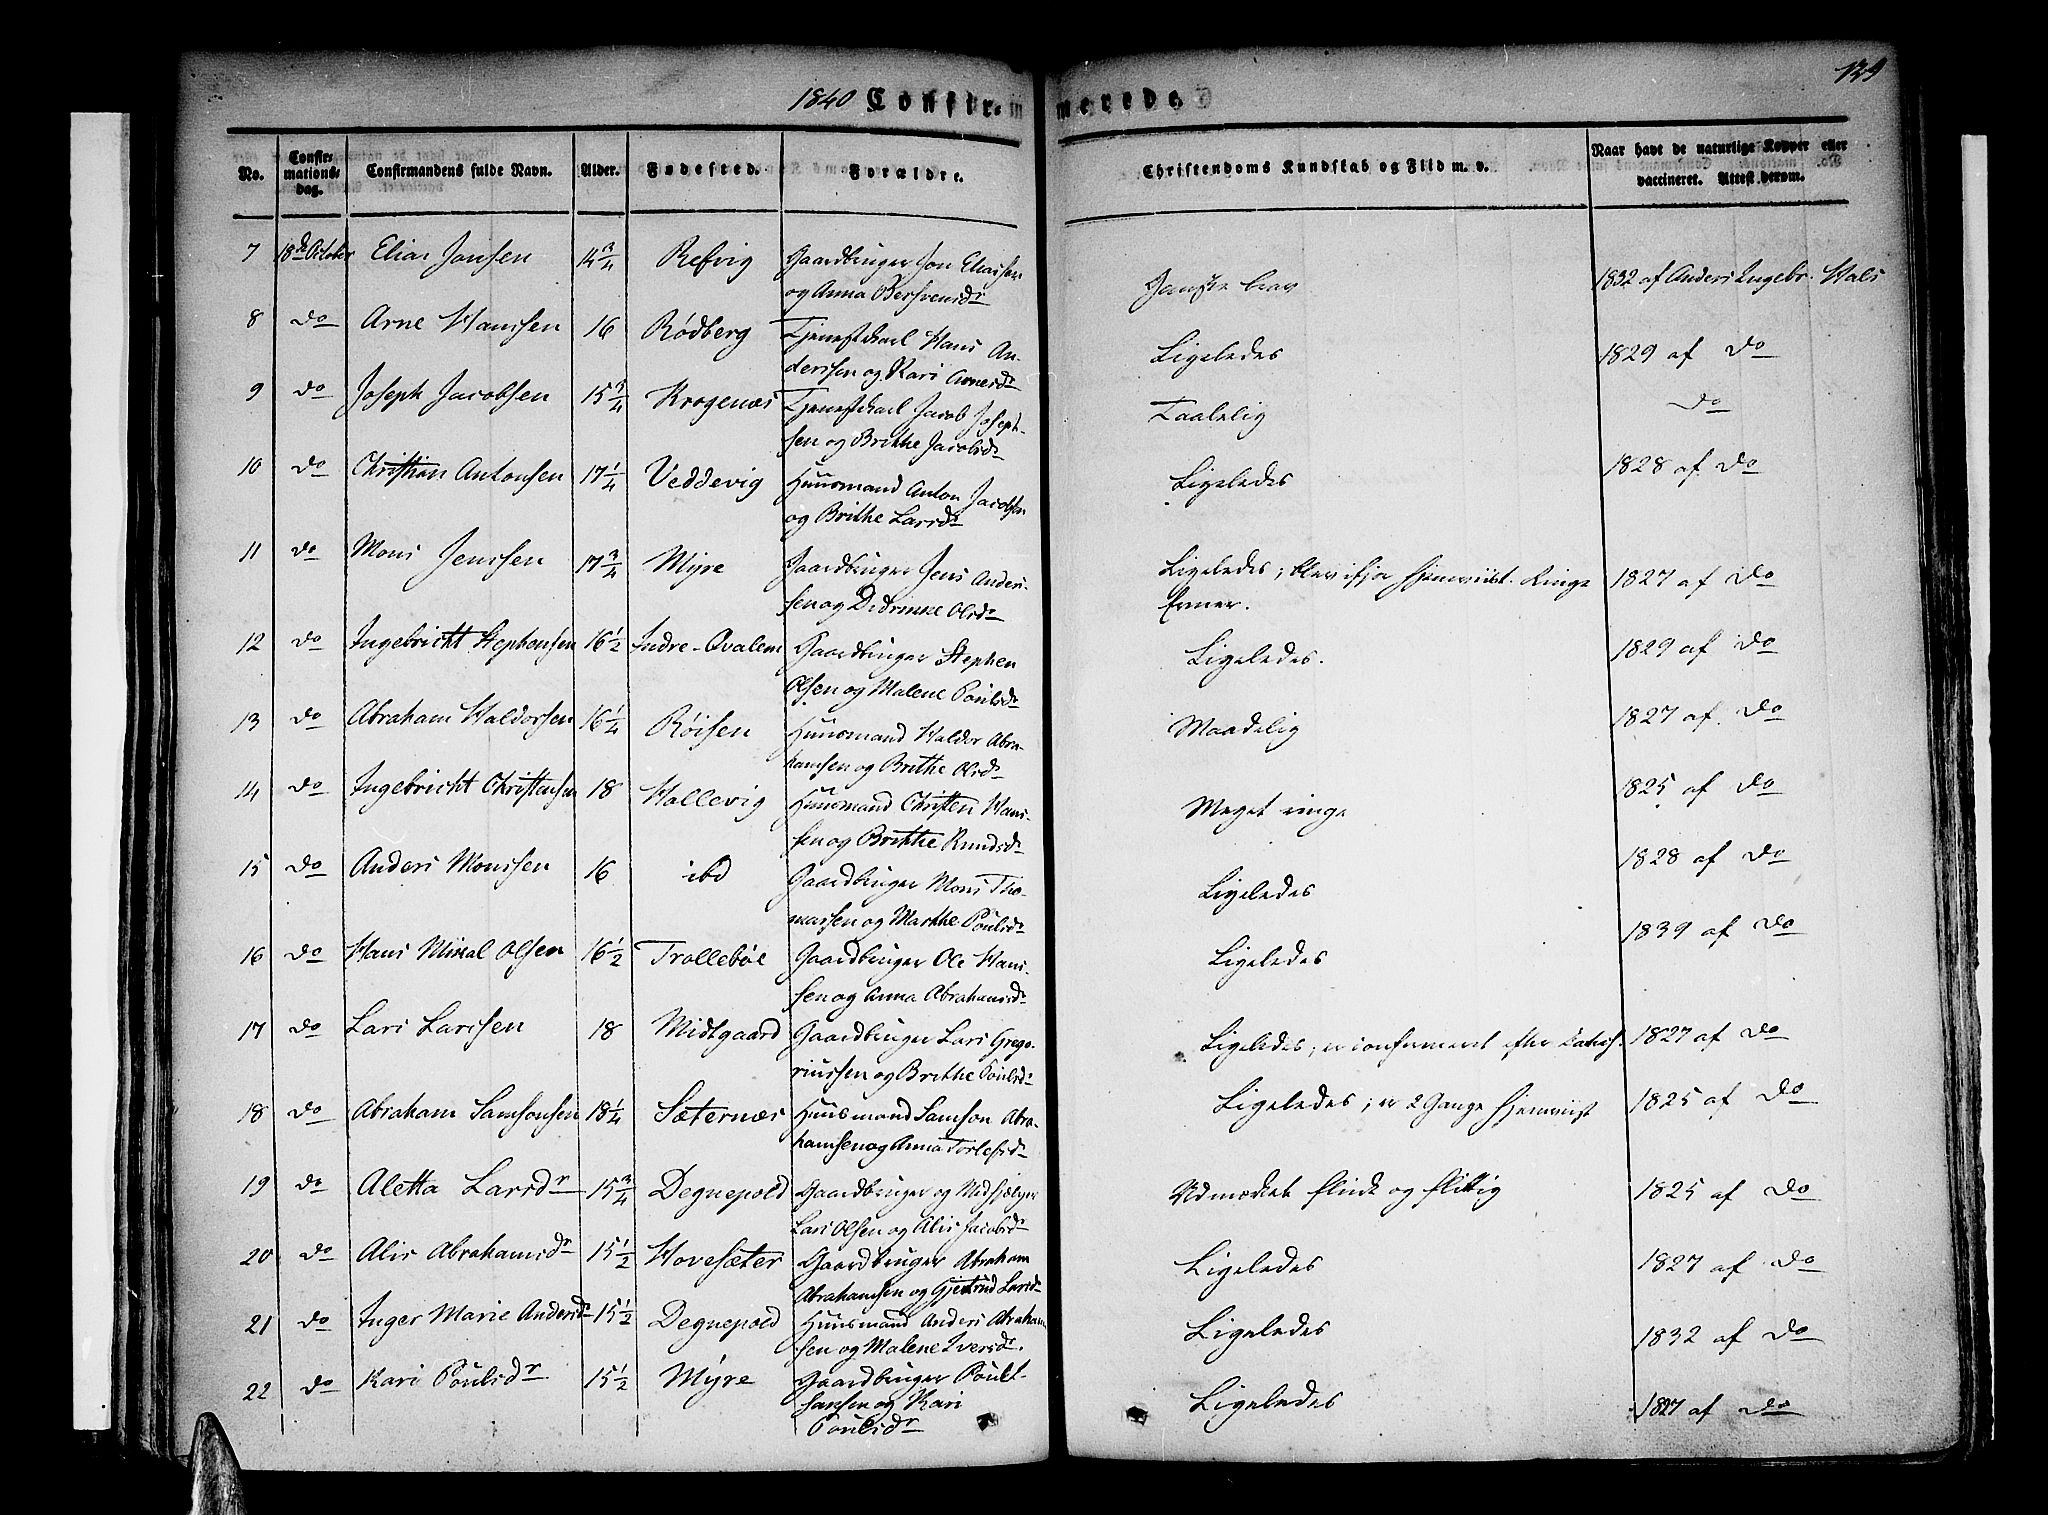 1840 Confirmerede. 129
No. Confirmationsdag. Confirmandens fulde Navn. Alder. Fødested. Forældre. Christendoms Kundskab og Flid m. v. Naar havt de naturlige Kopper eller vaccineret. Attest derom.
7 18de October Elias Jonsen 14 3/4 Refvig Gaardbruger Jon Eliassen
og Anna Bersvensdr Ganske brav 1832 af Anders Ingebr. Hals
8 do Arne Hanssen 16 Rødberg Tjenestkarl Hans An-
derssen og Kari Arnesdr Ligeledes 1829 af do
9 do Joseph Jacobsen 15 3/4 Krogenæs Tjenestkarl Jacob Joseph-
sen og Brithe Jacobsdr Taalelig do
10 do Christian Antonsen 17 1/4 Veddevig Huusmand Anton Jacobsen
og Brithe Larsdr Ligeledes 1828 af do
11 do Mons Jenssen 17 3/4 Myre Gaardbruger Jens Anders-
sen og Dedrikke Olsdr Ligeledes; blev ifjor hjemviist. Ringe
Evner. 1827 af do
12 do Ingebricht Stephensen 16 1/2 Indre-Qvalem Gaardbruger Stephen
Olsen og Malene Poulsdr Ligeledes. 1829 af do
13 do Abraham Haldorsen 16 1/4 Røisen Huusmand Haldor Abra-
hamsen og Brithe Olsdr Maadelig 1827 af do
14 do Ingebricht Christensen 18 Hallevig Huusmand Christen Hans-
sen og Brithe Knudsdr Meget ringe 1825 af do
15 do Anders Monssen 16 ibd Gaardbruger Mons Tho-
massen og Marthe Poulsdr Ligeledes 1828 af do
16 do Hans Mikal Olsen 16 1/2 Trollebøe Gaardbruger Ole Hans-
sen og Anna Abrahamsdr Ligeledes 1839 af do
17 do Lars Larssen 18 Midtgaard Gaardbruger Lars Grego-
riussen og Brithe Poulsdr Ligeledes; er confirmeret efter 1827 af do
18 do Abraham Samsonsen 18 1/4 Sæternæs Huusmand Samson Abra-
hamsen og Anna Torlefsdr Ligeledes; er 2 Gange hjemviist 1825 af do
19 do Aletta Larsdr 15 3/4 Degnepold Gaardbruger og Medhjelper
Lars Olsen og Alis Jacobsdr Udmærket flink og flittig 1825 af do
20 do Alis Abrahamsdr 15 1/2 Hovesæter Gaardbruger Abraham
Abrahamsen og Gjertrud Larsdr Ligeledes 1827 af do
21 do Inger Marie Andersdr 15 1/2 Degnepold Huusmand Anders Abraham-
sen og Malene Iversdr. Ligeledes 1832 af do
22 do Kari Poulsdr 15 1/2 Myre Gaardbruger
og Kari
Poulsdr Ligeledes 1827 af do